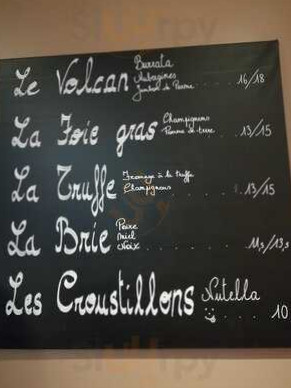 Le Volcan Burrata
Aubagines
Jambon de Parme . . . . 16/18
La Foie gras Champignons
Pomme de terre . . . 13/15
La Truffe Fromage à la truffe
Champignons . . . . 13/15
La Brie Poire
miel
noix . . . . . . . 11,5/13,5
Les Croustillons Nutella
. . . . 10